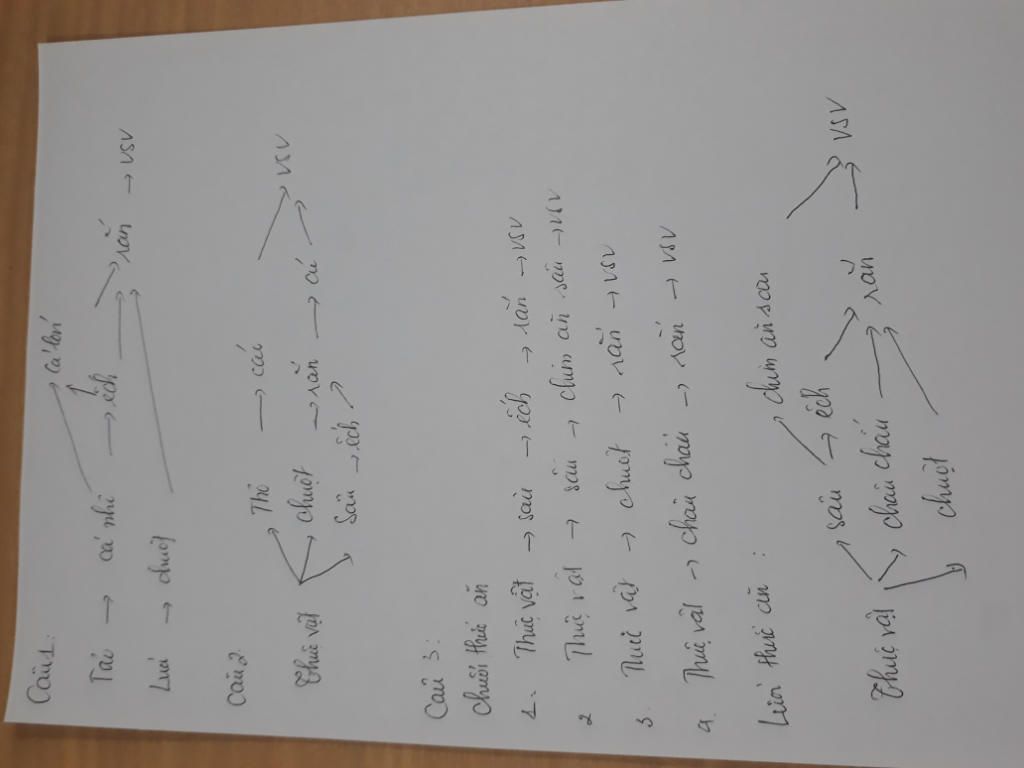 Câu 1:
cá lớn
Tảo → cá nhỏ → ếch → rắn → VSV
Lúa → chuột
Câu 2.
Thỏ → cáo
Thực vật → chuột → rắn → cú → VSV
Sâu → ếch
Câu 3:
chuỗi thức ăn
1. Thực vật → sâu → ếch → rắn → VSV
2 Thực vật → sâu → chim ăn sâu → VSV
3. Thực vật → chuột → rắn → VSV
4. Thực vật → châu chấu → rắn → VSV
Lưới thức ăn :
chim ăn sâu
sâu → ếch
Thực vật → châu chấu → rắn → VSV
chuột